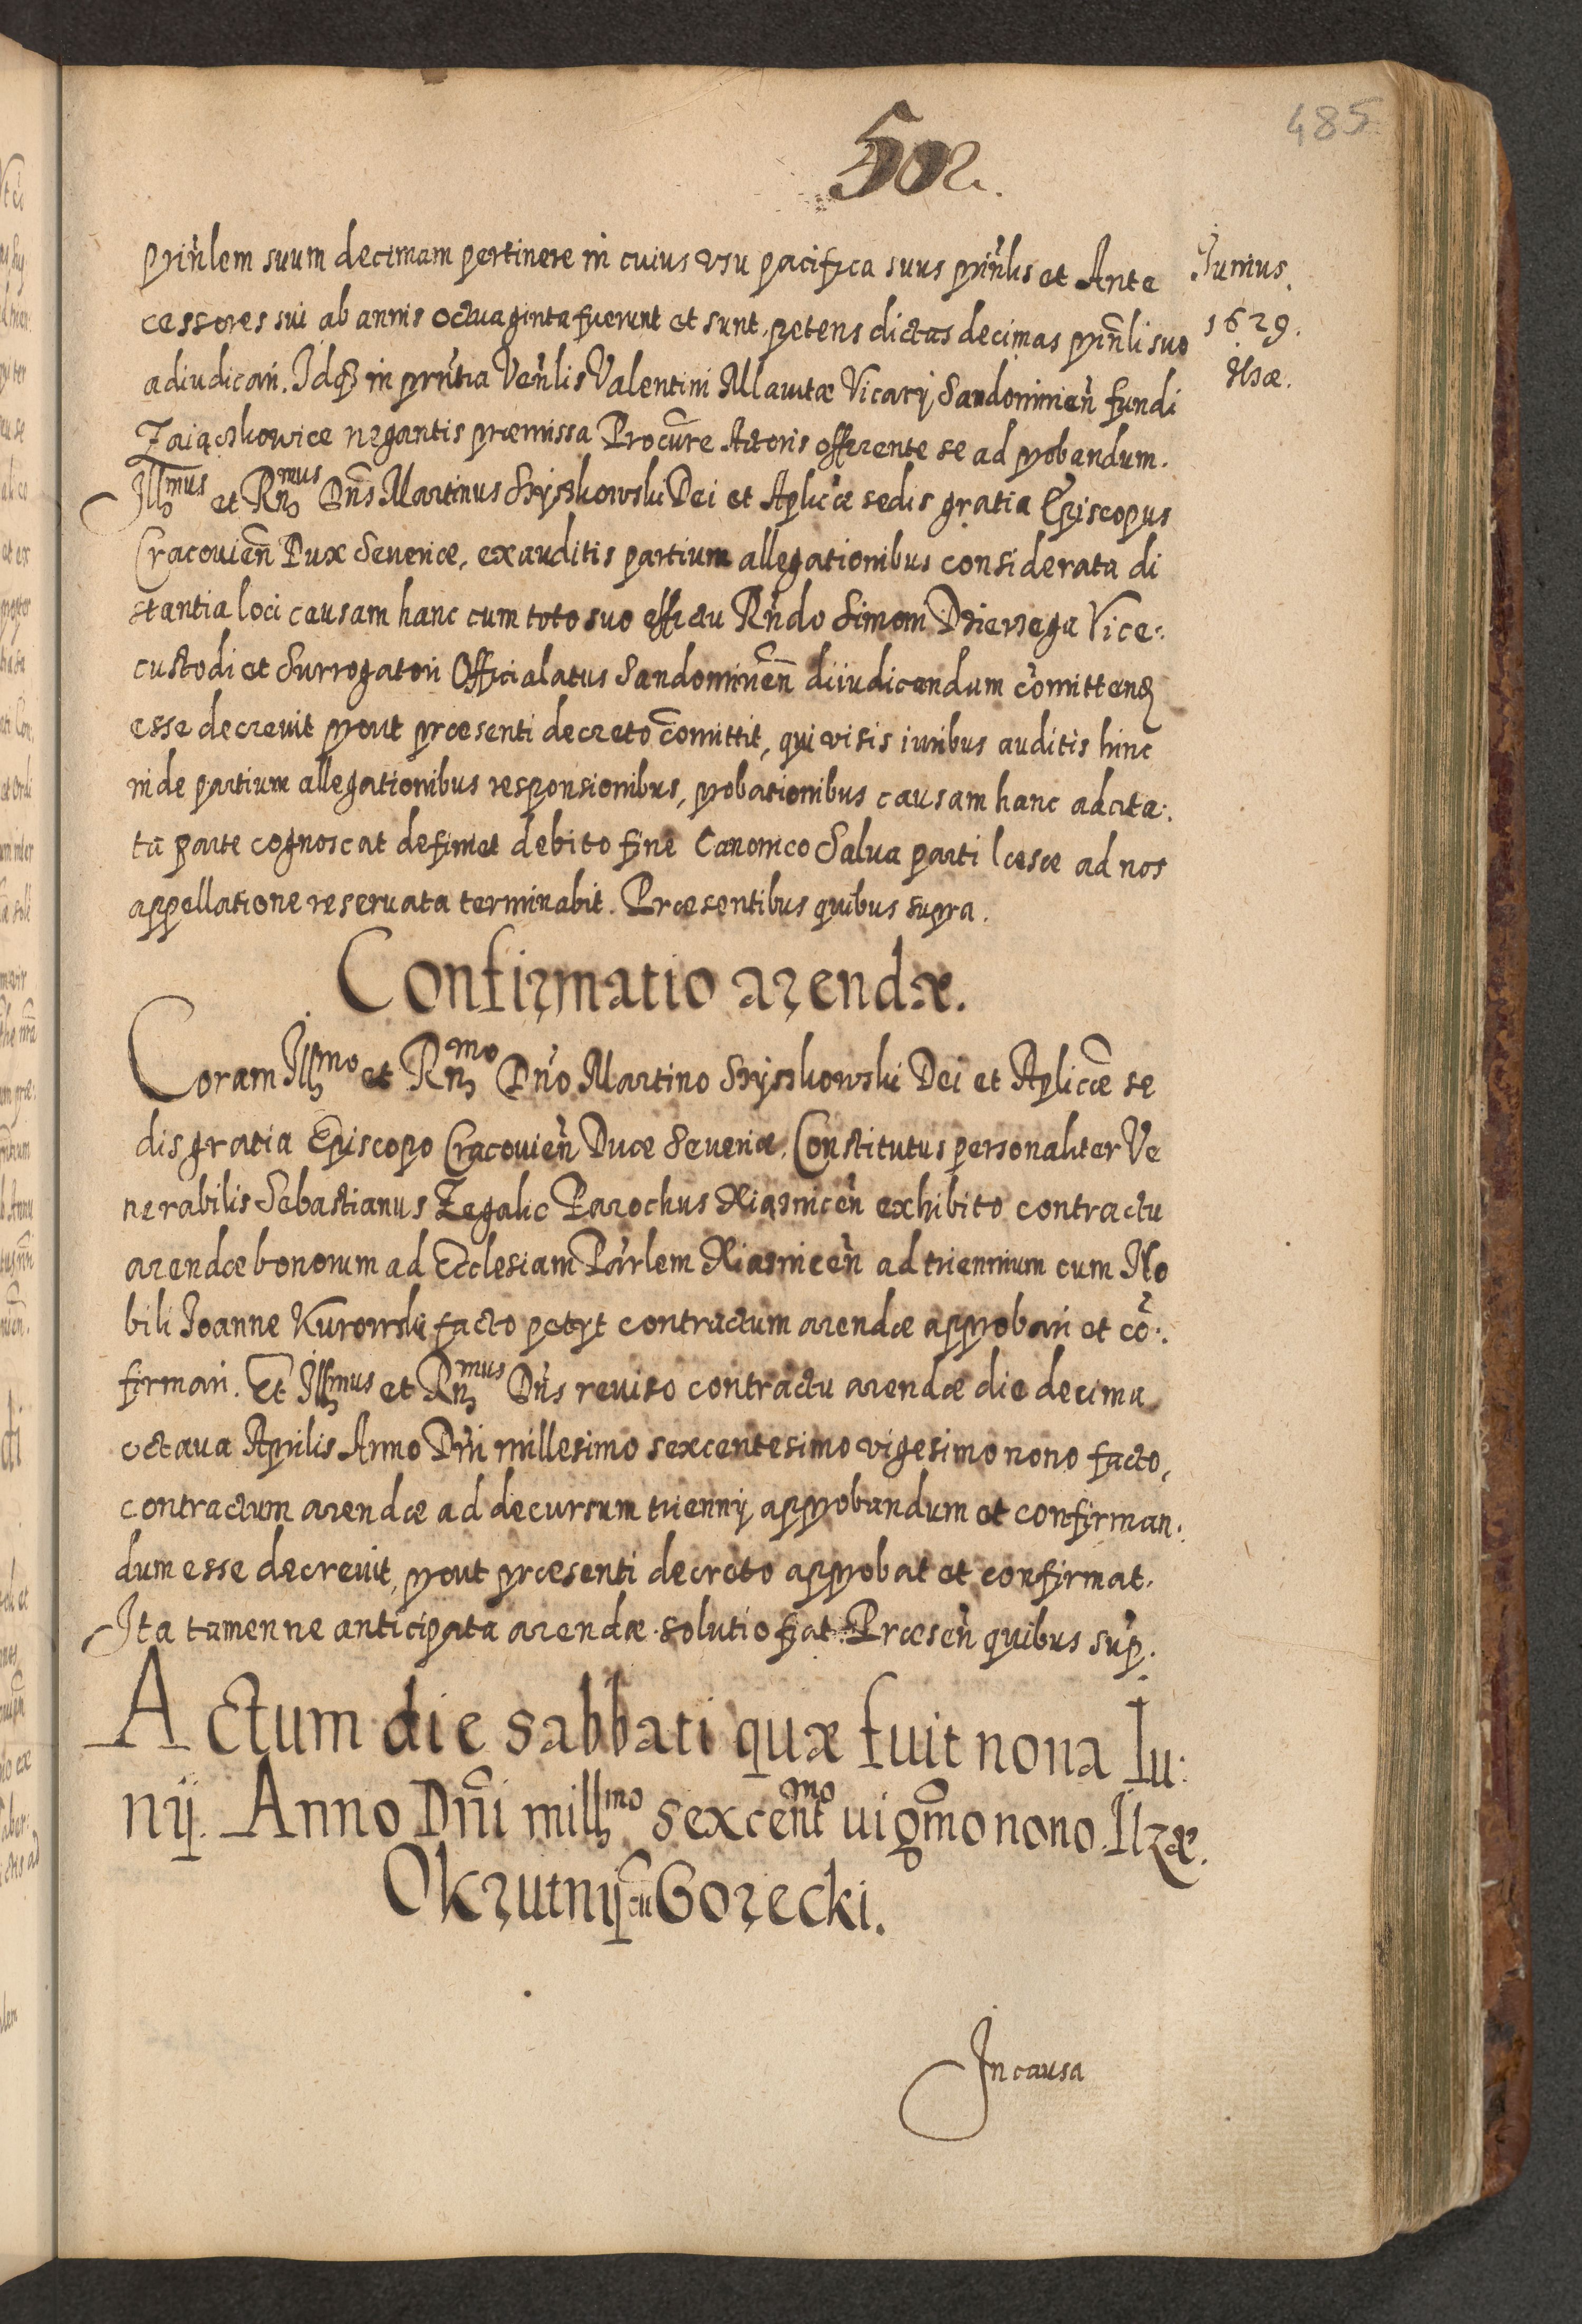 485
502.
Junius.
1629.
Ilzæ.
prin̄lem suum decimam pertinere in cuius vsu pacifica suus prin̄lis et Ante
cessores sui ab annis octuaginta fuerunt et sunt, petens dictas decimas prin̄li suo
adiudicari. Idq3 in prn̄tia Ven̄lis Valentini Mlawtæ Vicarij Sandomirien̄ fundi
Zaiączkowice negantis præmissa Procu͞re Actoris offerente se ad probandum.
Ill^mus et Rn^mus Dn͞s Martinus Szyszkowski Dei et Aplicæ sedis gratia Episcopus
Cracouien̄ Dux Seueriæ, exauditis partium allegationibus considerata di
stantia loci causam hanc cum toto suo effectu Rn̄do Simoni Vice:
custodi et Surrogatori Officialatus Sandomirien̄ diiudicandum com̄itten͞
esse decreuit prout præsenti decreto com̄ittit, qui visis iuribus auditis hinc
inde partium allegationibus responsionibus, probationibus causam hanc ad cita:
ta parte cognoscat definiet debito fine Canonico Salua parti læsæ ad nos
appellatione reseruata terminabit. Præsentibus quibus supra.
Confirmatio arendæ.
Coram Ill^mo et Rn^mo Dn̄o Martino Szyszkowski Dei et Aplicæ se
dis gratia Episcopo Cracouien̄ Duce Seueriæ. Constitutus personaliter Ve
nerabilis Sebastianus Zegalic Parochus Xiąznicen̄ exhibito contractu
arendæ bonorum ad Ecclesiam Par̄lem Xiąznicen̄ ad triennium cum No
bili Joanne Kurowski facto petijt contractum arendæ approbari et co͞:
firmari. Et Ill^mus et Rn^mus Dn̄s reuiso contractu arendæ die decima
octaua Aprilis Anno Dn̄i millesimo sexcentesimo vigesimo nono facto,
contractum arendæ ad decursum triennij approbandum et confirman:
dum esse decreuit, prout præsenti decreto approbat et confirmat.
Ita tamen ne anticipata arendæ solutio fiat. Præsen̄ quibus sup̄.
Actum die sabbati quæ fuit nona Iu:
nij. Anno Dn̄i mill^mo sexcent^mo uig͞mo nono Ilzæ.
Okrutnij cu͞ Gorecki.
In causa